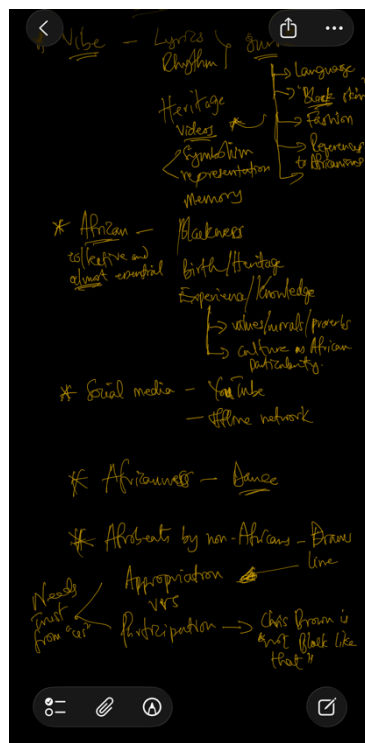 * Vibe – Lyrics
Rhythm
→ Language
→ "Black skin"
→ Fashion
→ References
to Africanness
Heritage
videos *
Symbolism
representation
memory
* African – Blackness
collective and
almost essential
Birth/Heritage
Experience/Knowledge
→ values/morals/proverbs
→ culture as African
particularity.
* Social media – YouTube
– offline network
* Africanness – Dance
* Afrobeats by non-Africans – Draws
line
Needs
trust
from "us"
Appropriation
vers
Participation → Chris Brown is
"not Black like
that"